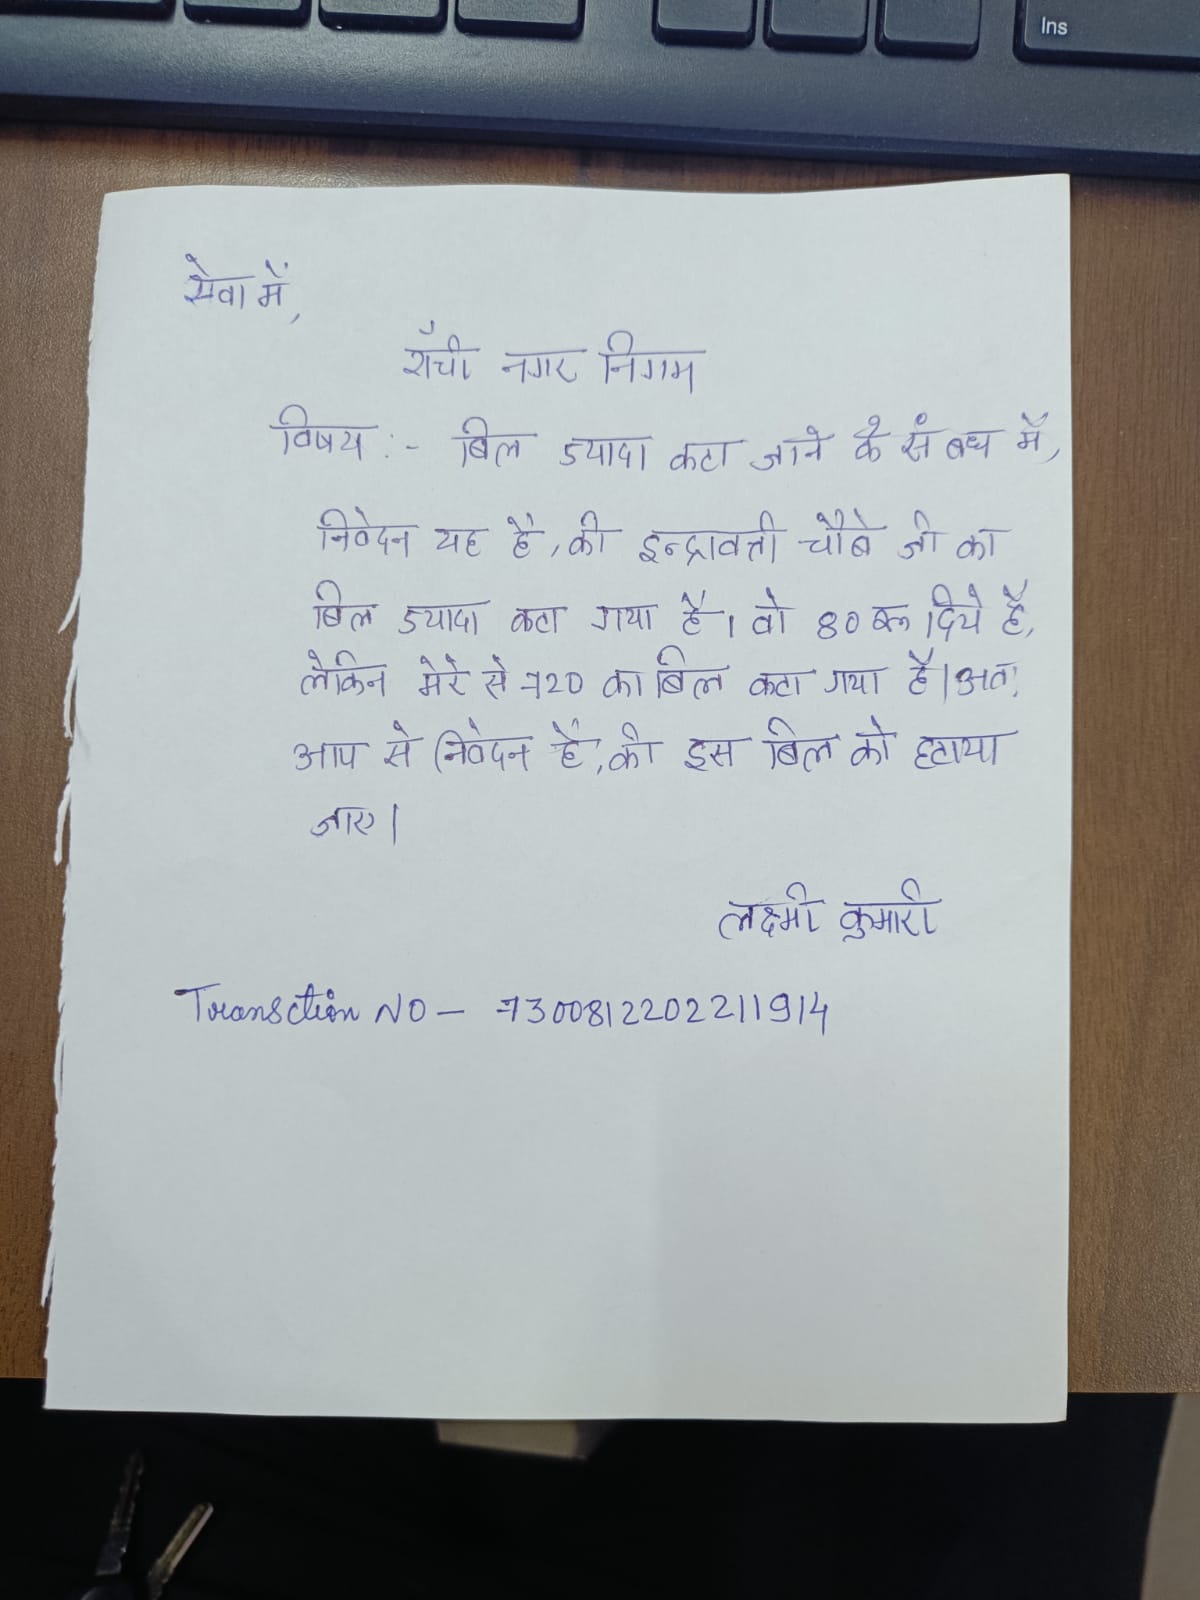 Ins
सेवा में,
राँची नगर निगम
विषय :- बिल ज्यादा कटा जाने के संबध में,
निवेदन यह है, की इन्द्रावती चौबे जी का
बिल ज्यादा कटा गया है। वो 80 रू दिये है,
लेकिन मेरे से 720 का बिल कटा गया है। अतः
आप से निवेदन है, की इस बिल को हटाया
जाए।
लक्ष्मी कुमारी
Transction NO - 7300812202211914